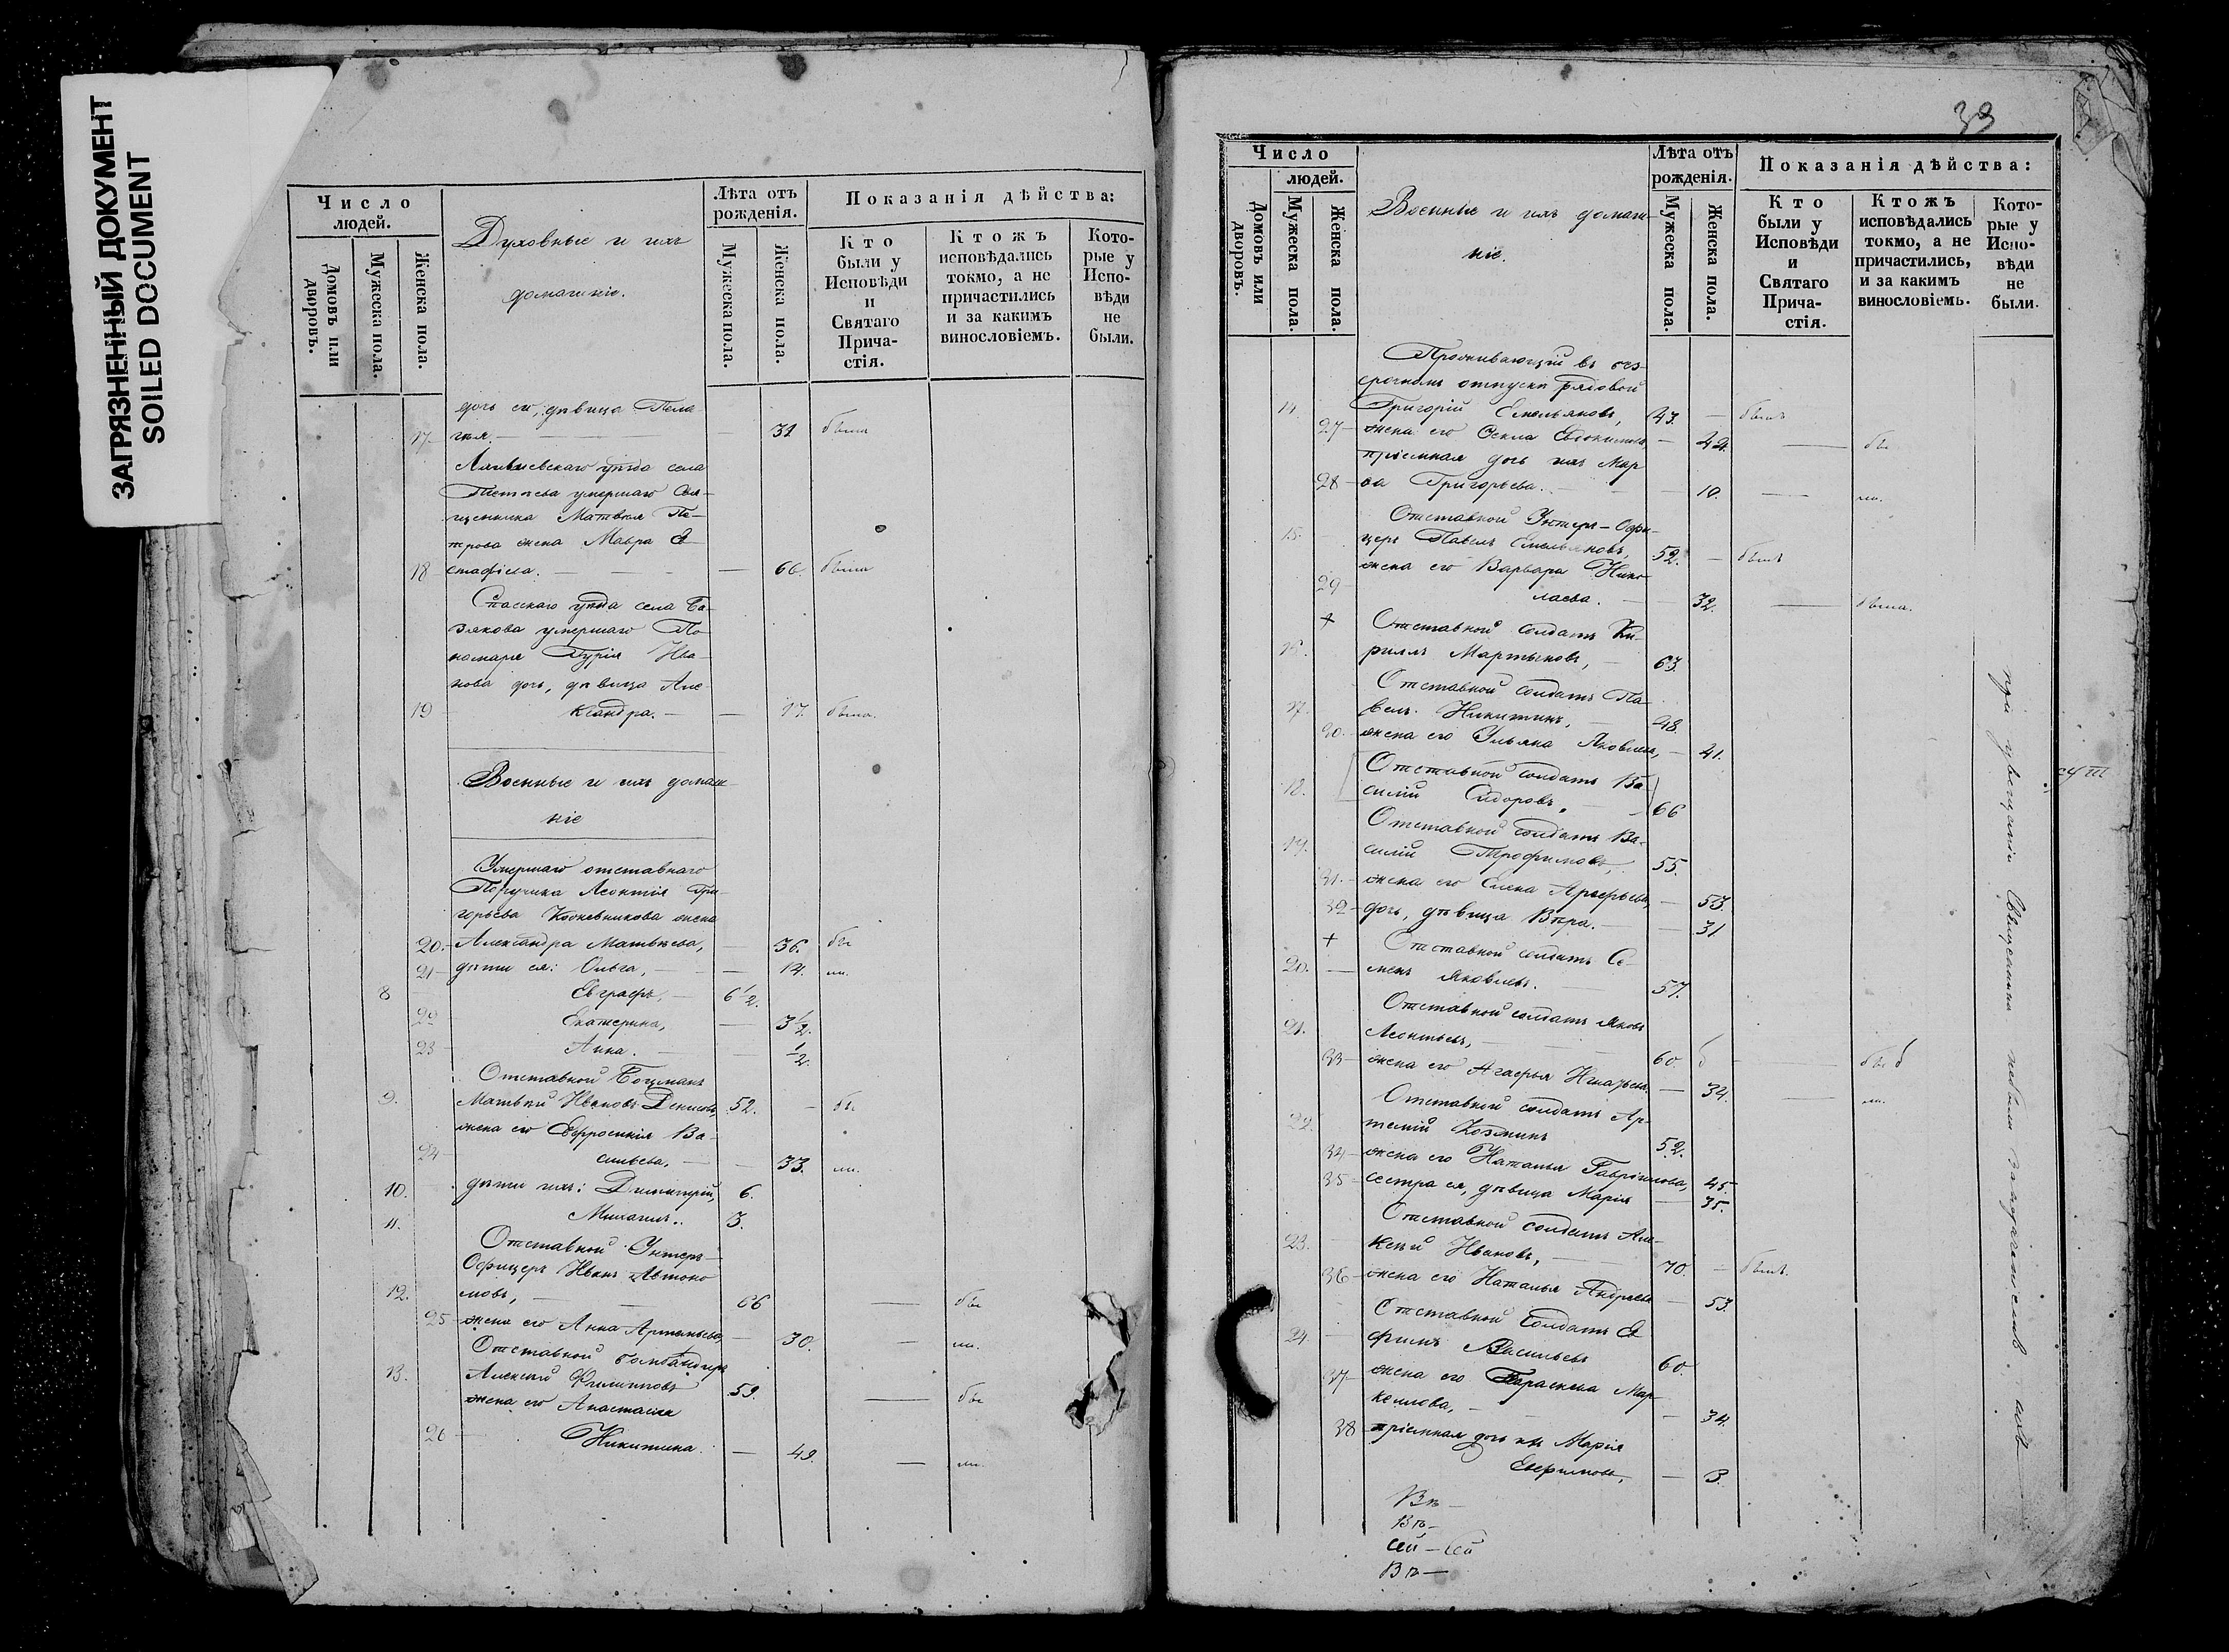 ЗАГРЯЗНЕННЫЙ ДОКУМЕНТ
SOILED DOCUMENT
Число
людей.
Домовъ или дворовъ.
Мужеска пола.
Женска пола.
Духовные и ихъ
домашніе.
Лѣта отъ
рожденія.
Мужеска пола.
Женска пола.
Показанія дѣйства:
Кто
были у
Исповѣди
и
Святаго
Прича-
стія.
Ктожъ
исповѣдались
токмо, а не
причастились
и за какимъ
винословіемъ.
Кото-
рые у
Испо-
вѣди
не
были.
дочь его, дѣвица Пела-
17 гія. — 31 была
уѣзда села
умершаго Свя-
щенника Матвѣя Пе-
трова жена Мавра Ев-
18 стафіева. — 66. была
Спасскаго уѣзда села Ба-
зякова умершаго По-
номаря Гурія Ива-
нова дочь, дѣвица Але-
19 ксандра. — 17. была.
Военные и ихъ домаш-
ніе
Умершаго отставнаго
Поручика Леонтія Гри-
горьева Кожевникова жена
20. Александра Матвѣева, — 36. бы
21 дѣти ея: Ольга, — 14. ли.
8 Евграфъ, — 6 1/2.
22 Екатерина, — 3 1/2.
23 Анна. — 1/2.
Отставной Боцманъ
9. Матвѣй Ивановъ Денисовъ 52. — бы
жена его Евфросинія Ва-
24 сильева. — 33. ли.
10. дѣти ихъ: Димитрій, 6.
11. Михаилъ. 3.
Отставной Унтеръ-
Офицеръ Иванъ Автоно-
12. мовъ, — 66 — бы
25 жена его Анна Артемьева, — 30. — ли.
Отставной бомбандиръ
13. Алексѣй Филипповъ 59. — бы
жена его Анастасія
26 Никитина. — 49. — ли.
39
Число
людей.
Домовъ или дворовъ.
Мужеска пола.
Женска пола.
Военные и ихъ домаш-
ніе.
Лѣта отъ
рожденія.
Мужеска пола.
Женска пола.
Показанія дѣйства:
Кто
были у
Исповѣди
и
Святаго
Прича-
стія.
Ктожъ
исповѣдались
токмо, а не
причастились,
и за какимъ
винословіемъ.
Кото-
рые у
Испо-
вѣди
не
были.
Проживающій въ без-
срочномъ отпуску рядовой
14. Григорій Емельяновъ, 43. — былъ
27 жена его Ѳекла Евдокимова, — 44. — бы
пріемная дочь ихъ Мар-
28 ѳа Григорьева. — 10. — ли.
Отставной Унтеръ-Офи-
15. церъ Павелъ Емельяновъ, 52. — былъ
жена его Варвара Нико-
29 лаева. — 32. — была.
+ Отставной солдатъ Ки-
16. риллъ Мартыновъ, — 63.
Отставной солдатъ Па-
17. велъ Никитинъ, — 48.
30. жена его Ульяна Яковлева, — 41.
Отставной солдатъ Ва-
18. силій Сидоровъ. — 66
Отставной солдатъ Ва-
19. силій Трофимовъ, 55.
31. жена его Елена Арефьева, — 53.
32 дочь, дѣвица Вѣра. — 31
+ Отставной солдатъ Се-
20. — менъ Яковлевъ. — 57.
Отставной солдатъ Яковъ
21. Леонтьевъ, — 60. б — бы б
33 жена его Агафья Игнатьева. — 34. — ли.
Отставной солдатъ Ар-
22. темій Козминъ 52.
34 жена его Наталья Гавріилова, 45.
35 сестра ея, дѣвица Марія — 35.
Отставной солдатъ Але-
23. ксѣй Ивановъ, — 70. — былъ.
36 жена его Наталья Андреева — 53.
Отставной солдатъ Е-
24 фимъ Васильевъ 60.
37 жена его Параскева Мар-
келлова, — 34.
38 пріемная дочь ихъ Марія
Ефимова, — 3.
Въ —
Въ —
сей — сей
Въ —
при увѣщаніи Священникомъ небыли